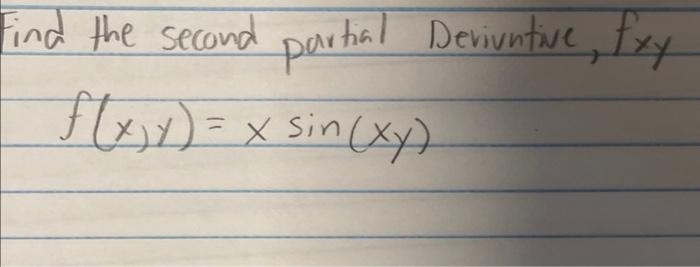 Find the second partial Derivntive, fxy
f(x,y) = x sin(xy)